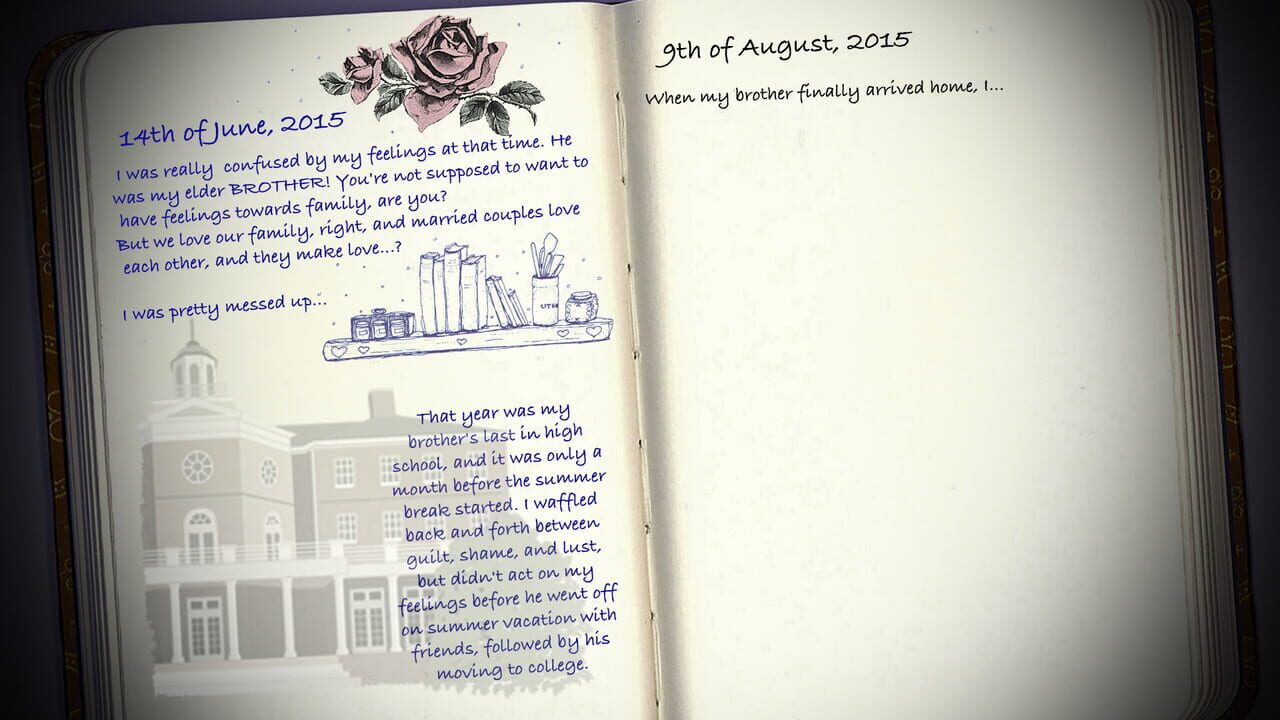 14th of June, 2015
I was really confused by my feelings at that time. He
was my elder BROTHER! You're not supposed to want to
have feelings towards family, are you?
But we love our family, right, and married couples love
each other, and they make love...?
I was pretty messed up...
UTEN
That year was my
brother's last in high
school, and it was only a
month before the summer
break started. I waffled
back and forth between
guilt, shame, and lust,
but didn't act on my
feelings before he went off
on summer vacation with
friends, followed by his
moving to college.
9th of August, 2015
When my brother finally arrived home, I...